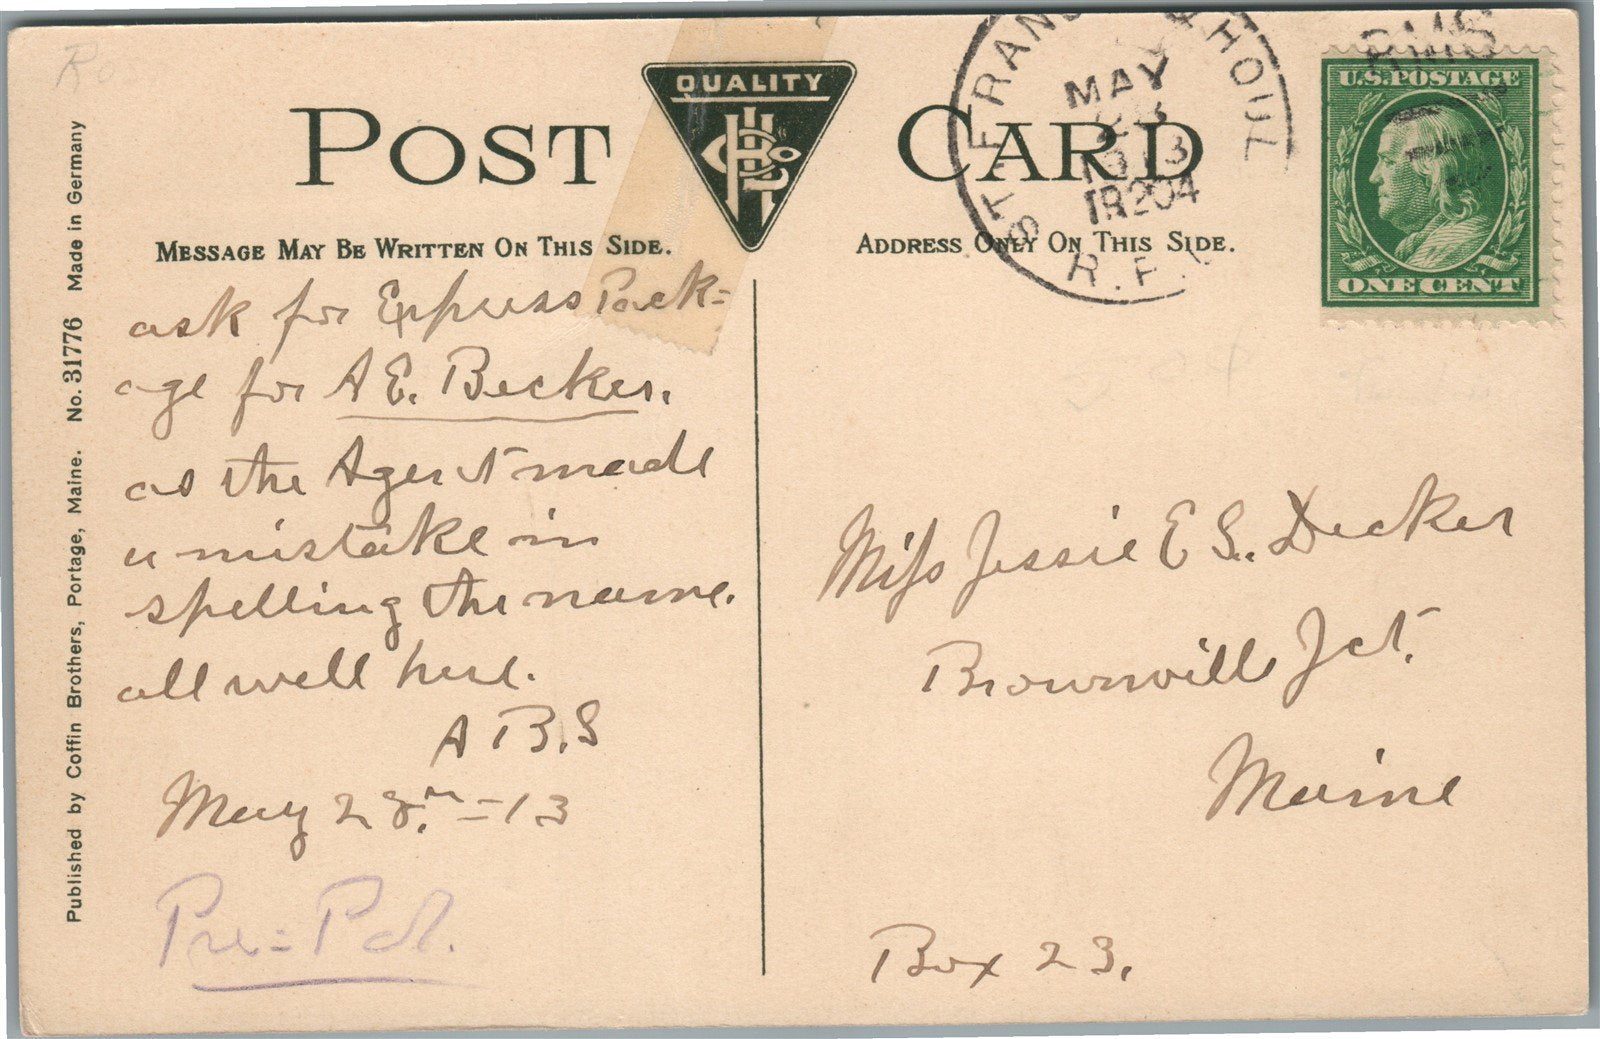 POST CARD
QUALITY
MESSAGE MAY BE WRITTEN ON THIS SIDE.
ADDRESS ONLY ON THIS SIDE.
ask for Express Pack=
age for A E. Becker.
as the Agent made
a mistake in
spelling the name.
all well here.
A B. S
May 28. = 13
Pre = Pd.
Published by Coffin Brothers, Portage, Maine. No. 31776 Made in Germany
MAY
1913
TR204
R.F.
RMS
U.S. POSTAGE
ONE CENT
Miss Jessie E S. Decker
Brownville Jct.
Maine
Box 23.